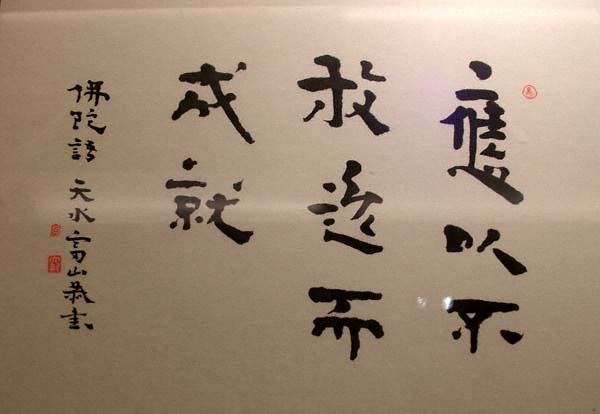 應以不
放逸而
成就
佛陀語 天水富山恭書